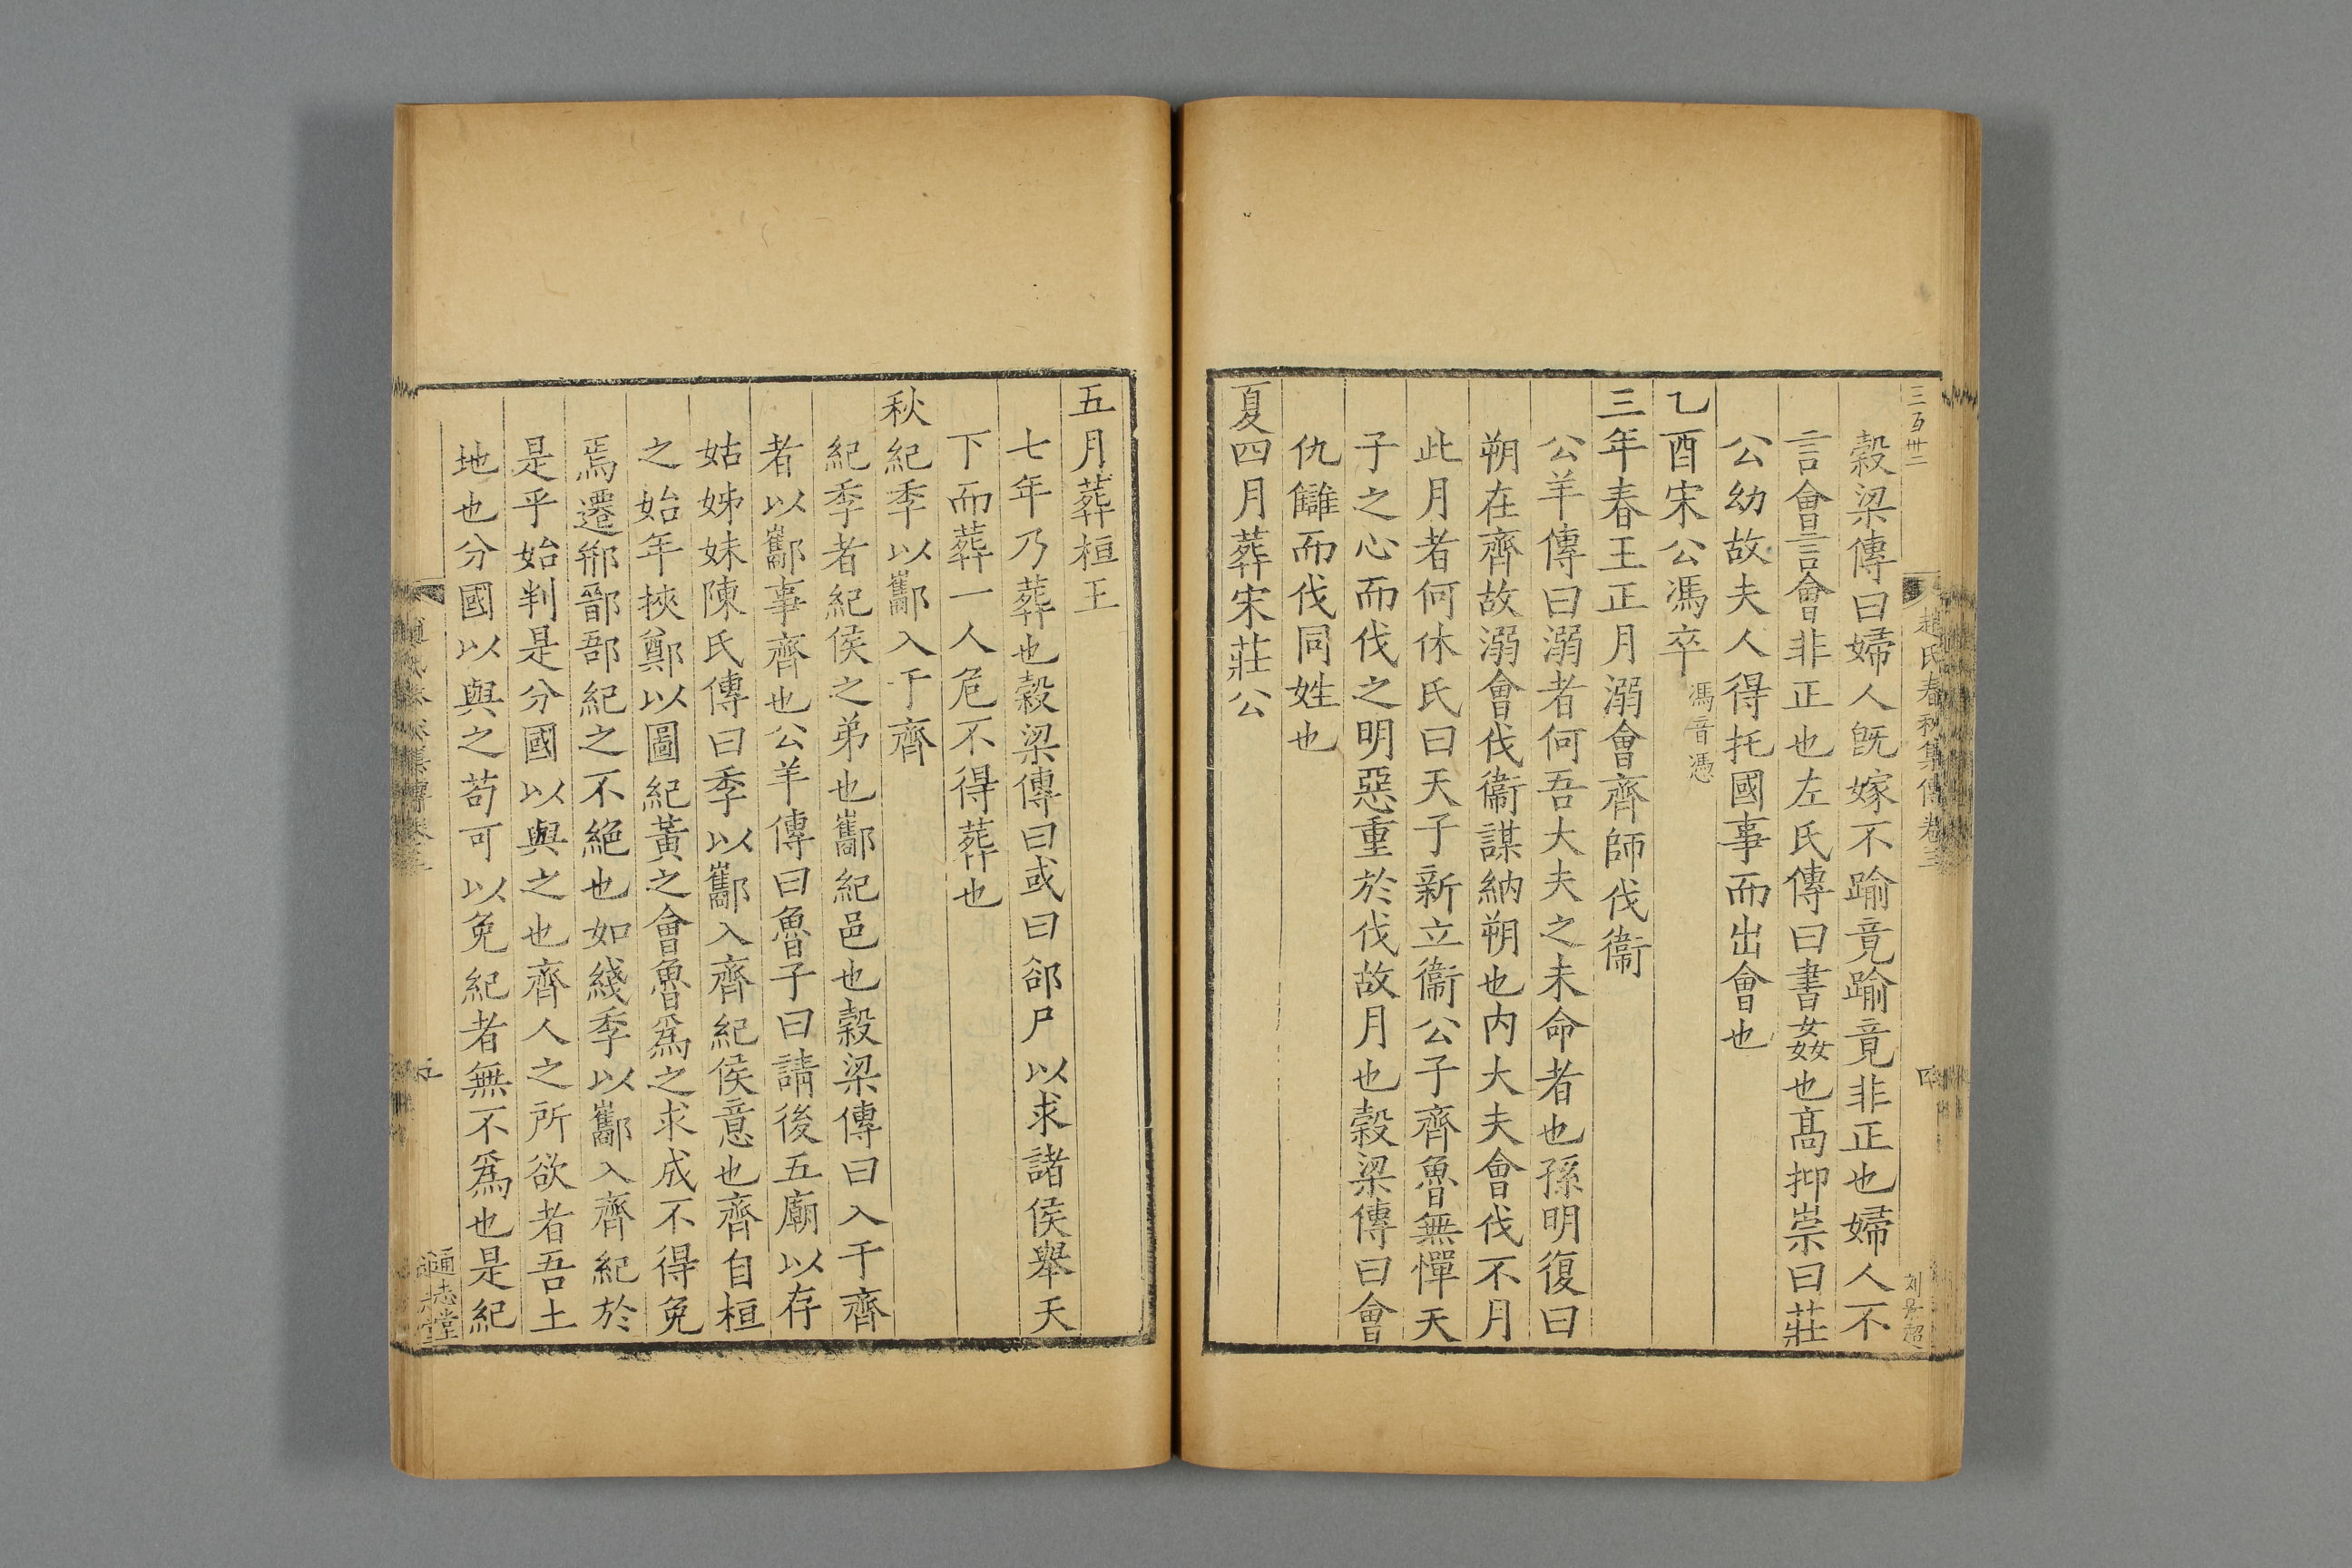 三百卅二
趙氏春秋集傳卷三
四
穀梁傳曰婦人旣嫁不踰竟踰竟非正也婦人不
言會言會非正也左氏傳曰書姦也髙抑崇曰莊
公幼故夫人得托國事而出會也
乙酉宋公馮卒馮音憑
三年春王正月溺會齊師伐衞
公羊傳曰溺者何吾大夫之未命者也孫明復曰
朔在齊故溺會伐衞謀納朔也内大夫會伐不月
此月者何休氏曰天子新立衞公子齊魯無憚天
子之心而伐之明惡重於伐故月也穀梁傳曰會
仇讎而伐同姓也
夏四月葬宋莊公
五月葬桓王
七年乃葬也穀梁傳曰或曰郤尸以求諸侯舉天
下而葬一人危不得葬也
秋紀季以酅入于齊
紀季者紀侯之弟也酅紀邑也穀梁傳曰入于齊
者以酅事齊也公羊傳曰魯子曰請後五廟以存
姑姊妹陳氏傳曰季以酅入齊紀侯意也齊自桓
之始年挾鄭以圖紀黃之會魯爲之求成不得免
焉遷郱鄑郚紀之不絶也如綫季以酅入齊紀於
是乎始判是分國以與之也齊人之所欲者吾土
地也分國以與之苟可以免紀者無不爲也是紀
五
通志堂